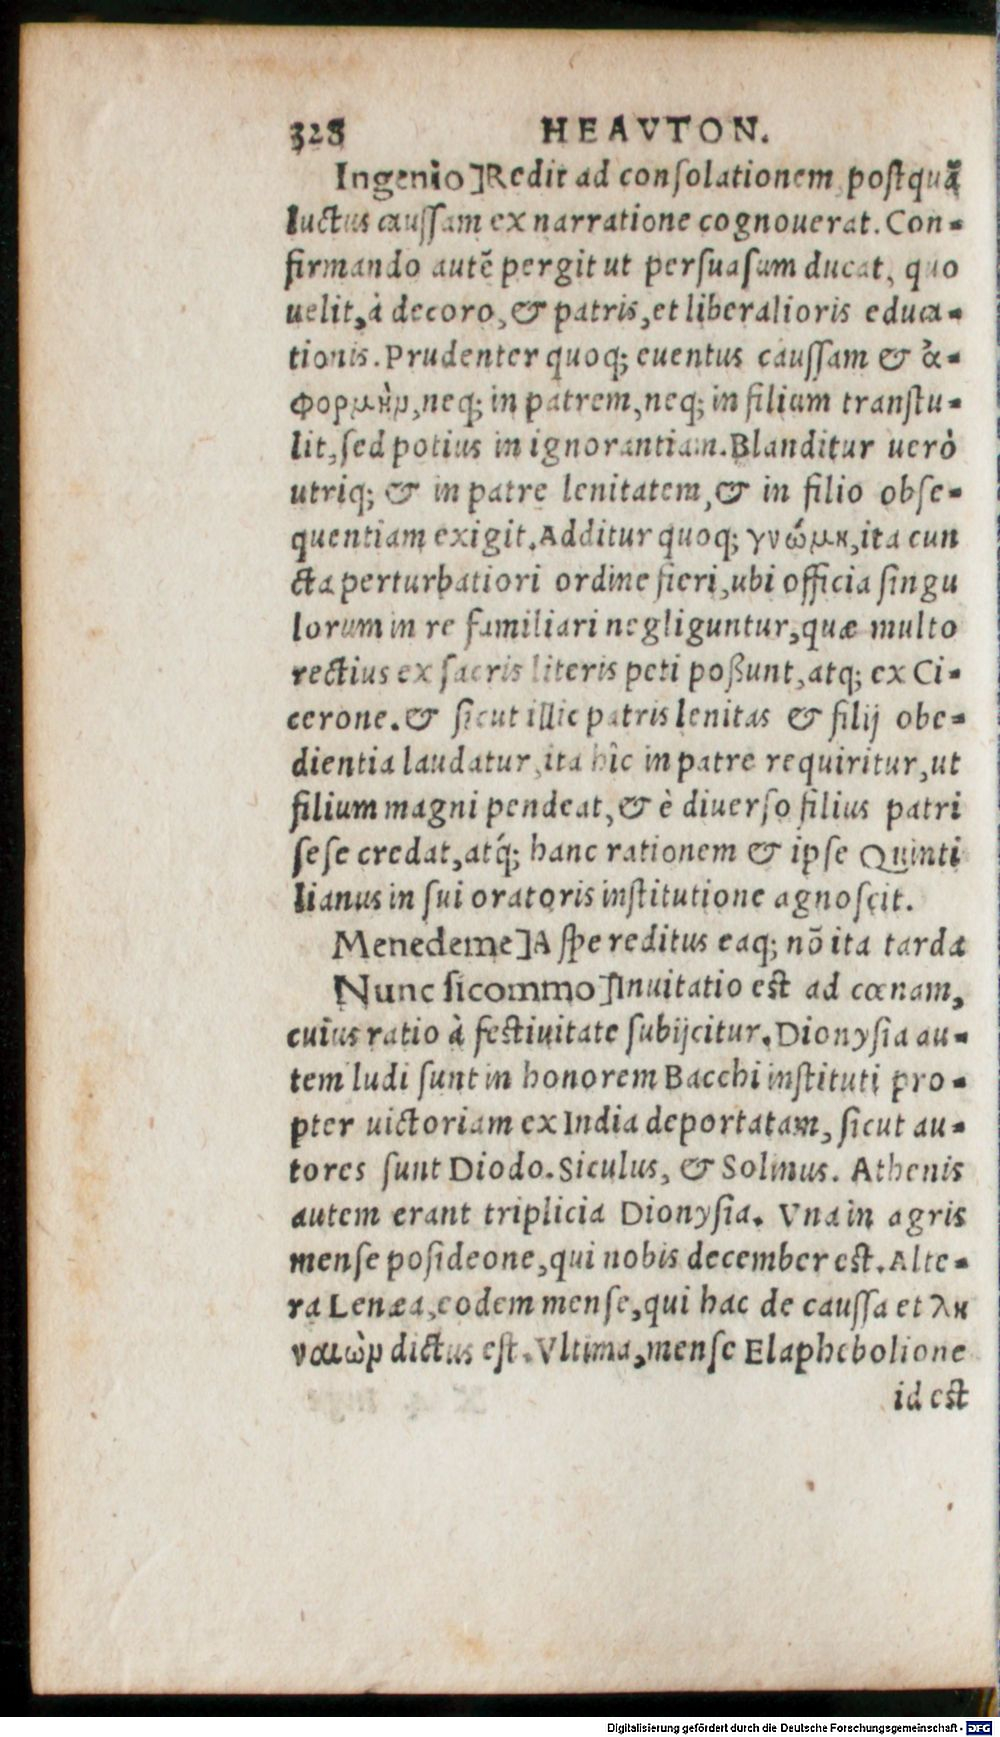 328 HEAVTON.
Ingenio]Redit ad conſolationem poſtquã
luctus cauſſam ex narratione cognouerat. Con-
firmando autẽ pergit ut perſuaſum ducat, quo
uelit,à decoro,& patris,et liberalioris educa-
tionis. Prudenter quoq; euentus cauſſam & ἀ-
φορμὴν,neq; in patrem,neq; in filium tranſtu-
lit,ſed potius in ignorantiam. Blanditur uerò
utriq; & in patre lenitatem,& in filio obſe-
quentiam exigit. Additur quoq; γνώμη,ita cun
cta perturbatiori ordine fieri,ubi officia ſingu
lorum in re familiari negliguntur,quæ multo
rectius ex ſacris literis peti poßunt,atq; ex Ci-
cerone.& ſicut illic patris lenitas & filij obe-
dientia laudatur,ita hîc in patre requiritur,ut
filium magni pendeat,& è diuerſo filius patri
ſeſe credat,atq́; hanc rationem & ipſe Quinti
lianus in ſui oratoris inſtitutione agnoſcit.
Menedeme]A ſpe reditus eaq; nõ ita tarda
Nunc ſicommo]Inuitatio eſt ad cœnam,
cuius ratio à feſtiuitate ſubijcitur. Dionyſia au-
tem ludi ſunt in honorem Bacchi inſtituti pro-
pter uictoriam ex India deportatam, ſicut au-
tores ſunt Diodo. Siculus, & Solinus. Athenis
autem erant triplicia Dionyſia. Vna in agris
menſe poſideone,qui nobis december eſt. Alte-
ra Lenæa,eodem menſe,qui hac de cauſſa et λη
ναιὼν dictus eſt. Vltima,menſe Elaphebolione
id eſt
Digitalisierung gefördert durch die Deutsche Forschungsgemeinschaft - DFG